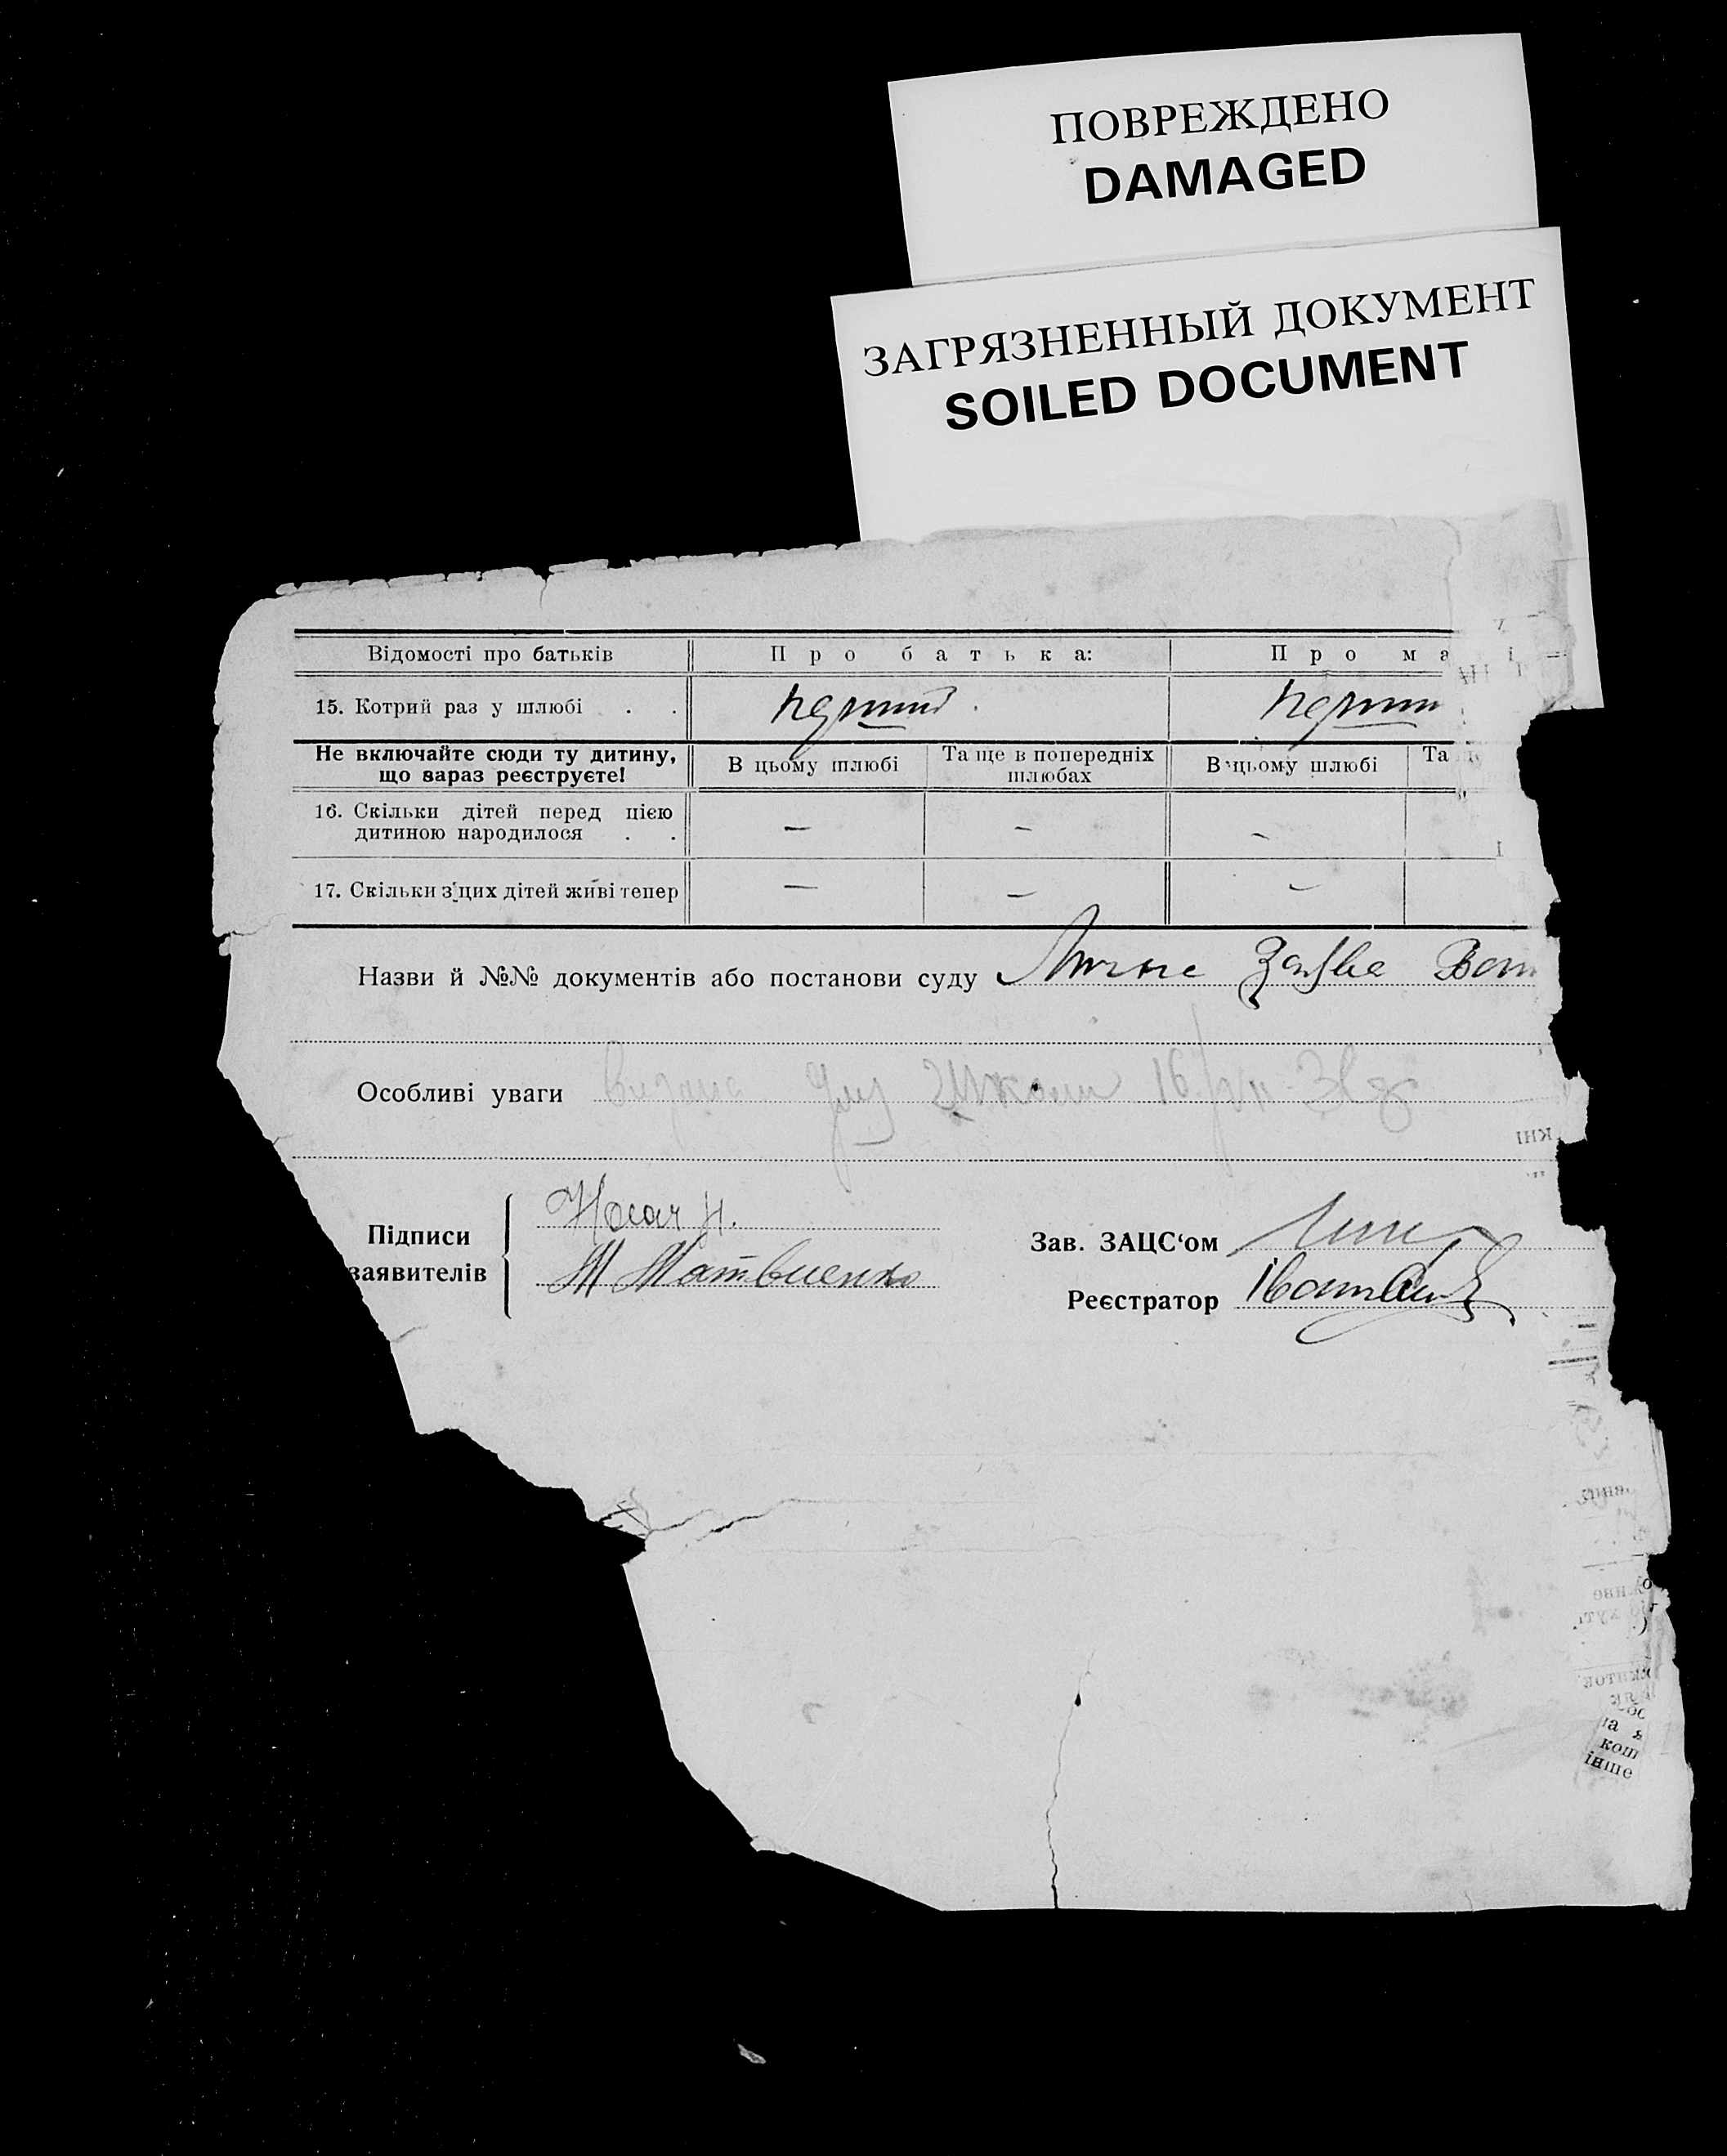 ПОВРЕЖДЕНО
DAMAGED
ЗАГРЯЗНЕННЫЙ ДОКУМЕНТ
SOILED DOCUMENT
Відомості про батьків Про батька: Про ма і
15. Котрий раз у шлюбі . . перший . перши
Не включайте сюди ту дитину, що зараз реєструєте! В цьому шлюбі Та ще в попередніх шлюбах В цьому шлюбі Та
16. Скільки дітей перед цією
дитиною народилося . . — — —
17. Скільки з цих дітей живі тепер — — —
Назви й №№ документів або постанови суду
Особливі уваги 16/VII
Підписи заявителів
Носач Н.
М Матвиенко
Зав. ЗАЦС‘ом
Реєстратор
кош
інше